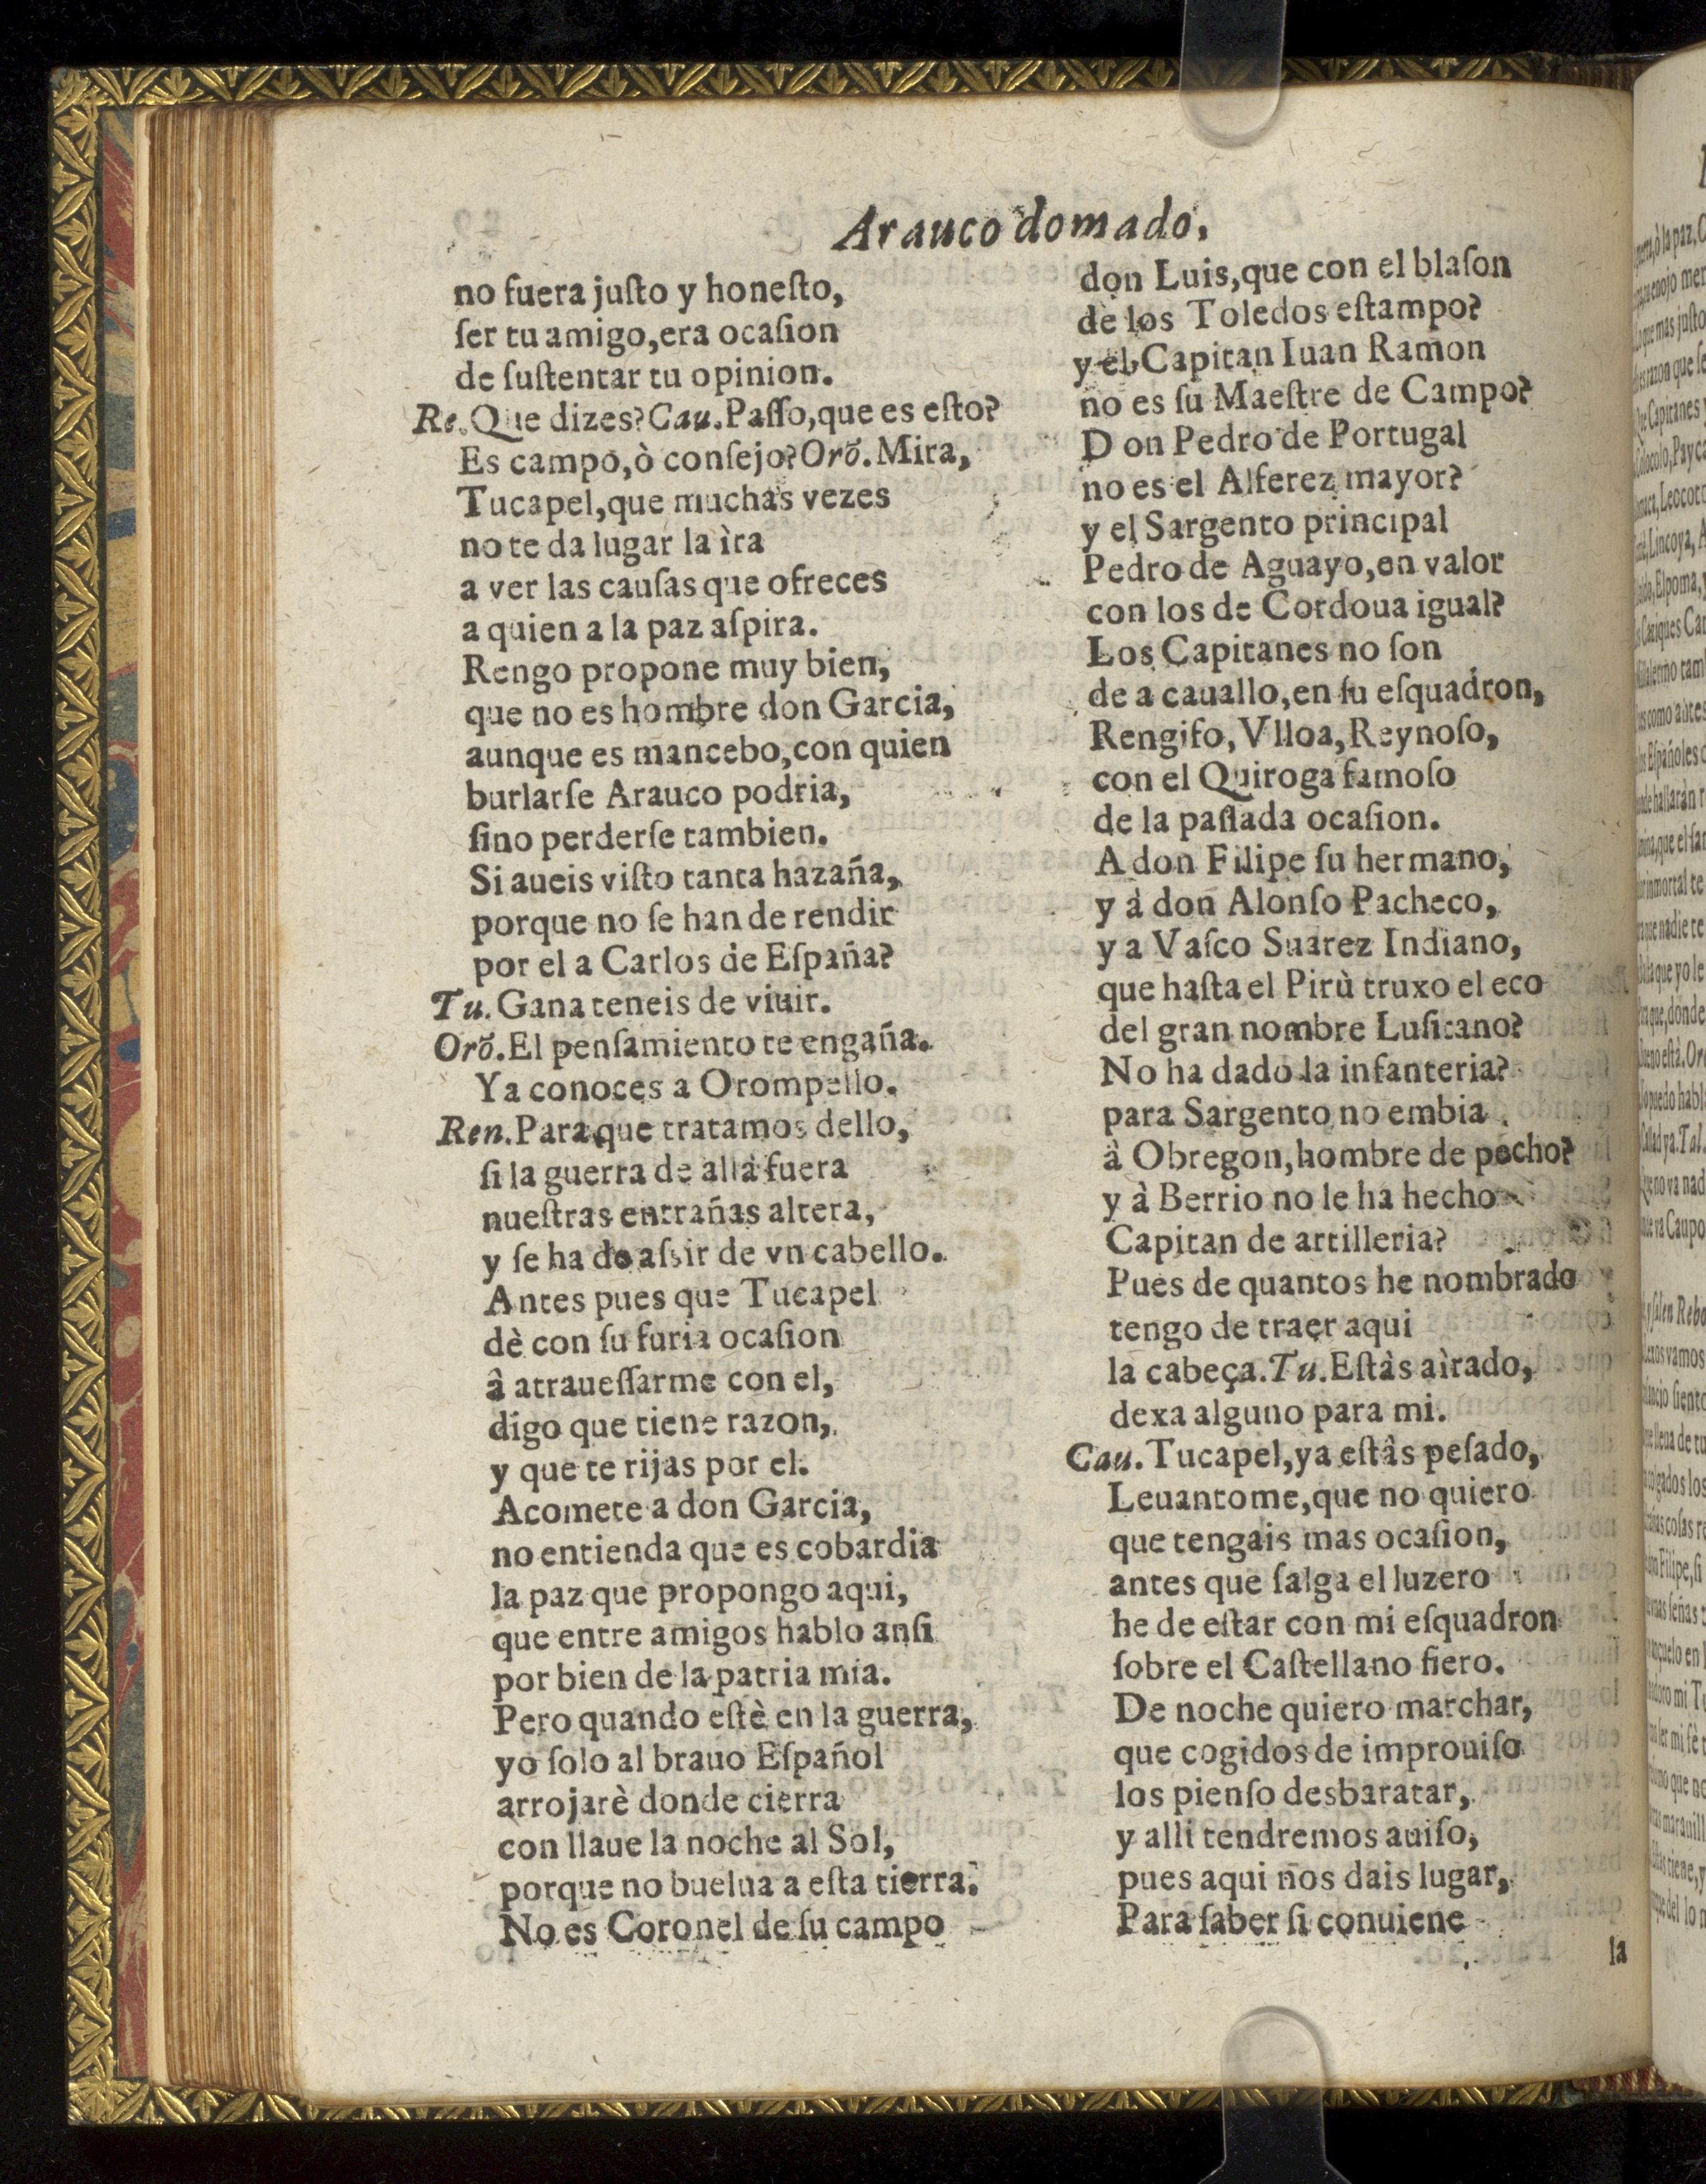 Arauco domado,
no fuera juſto y honeſto,
ſer tu amigo,era ocaſion
de ſuſtentar tu opinion.
Re.Que dizes?Cau.Paſſo,que es eſto?
Es campo,ò conſejo?Orõ.Mira,
Tucapel,que muchas vezes
no te da lugar la ìra
a ver las cauſas que ofreces
a quien a la paz aſpira.
Rengo propone muy bien,
que no es hombre don Garcia,
aunque es mancebo,con quien
burlarſe Arauco podria,
ſino perderſe tambien.
Si aueis viſto tanta hazaña,
porque no ſe han de rendir
por el a Carlos de Eſpaña?
Tu.Gana teneis de viuir.
Orõ.El penſamiento te engaña.
Ya conoces a Orompello.
Ren.Para que tratamos dello,
ſi la guerra de allà fuera
nueſtras entrañas altera,
y ſe ha de aſsir de vn cabello.
Antes pues que Tucapel
dè con ſu furia ocaſion
â atraueſſarme con el,
digo que tiene razon,
y que te rijas por el.
Acomete a don Garcia,
no entienda que es cobardia
la paz que propongo aqui,
que entre amigos hablo anſi
por bien de la patria mia.
Pero quando eſtè en la guerra,
yo ſolo al brauo Eſpañol
arrojarè donde cierra
con llaue la noche al Sol,
porque no buelua a eſta tierra.
No es Coronel de ſu campo
don Luis,que con el blaſon
de los Toledos eſtampo?
y el Capitan Iuan Ramon
no es ſu Maeſtre de Campo?
Don Pedro de Portugal
no es el Alferez mayor?
y el Sargento principal
Pedro de Aguayo,en valor
con los de Cordoua igual?
Los Capitanes no ſon
de a cauallo,en ſu eſquadron,
Rengifo, Vlloa, Reynoſo,
con el Quiroga famoſo
de la paſſada ocaſion.
A don Filipe ſu hermano,
y à don Alonſo Pacheco,
y a Vaſco Suarez Indiano,
que haſta el Pirù truxo el eco
del gran nombre Luſitano?
No ha dado la infanteria?
para Sargento no embia
à Obregon,hombre de pecho?
y à Berrio no le ha hecho
Capitan de artilleria?
Pues de quantos he nombrado
tengo de traer aqui
la cabeça.Tu.Eſtàs aìrado,
dexa alguno para mi.
Cau.Tucapel,ya eſtâs peſado,
Leuantome,que no quiero
que tengais mas ocaſion,
antes que ſalga el luzero
he de eſtar con mi eſquadron
ſobre el Caſtellano fiero.
De noche quiero marchar,
que cogidos de improuiſo
los pienſo desbaratar,
y alli tendremos auiſo,
pues aqui nos dais lugar,
Para ſaber ſi conuiene
la